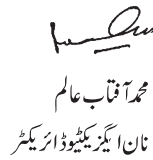 محمد آفتاب عالم
نان ایگزیکٹیو ڈائریکٹر